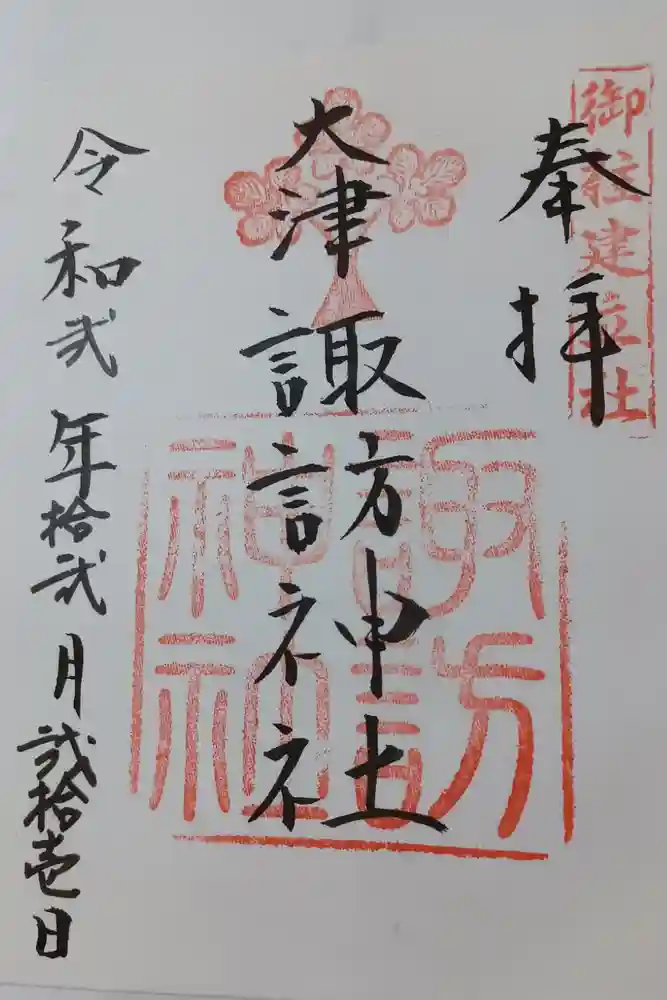 御柱建立社
奉拝
大津諏訪神社
諏訪神社
令和弐年拾弐月弐拾壱日